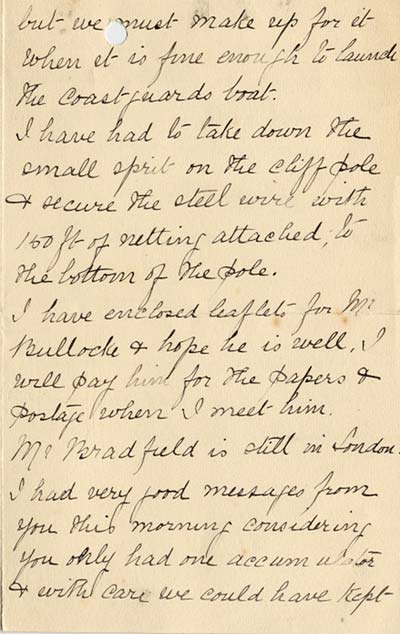 but we must make up for it
when it is fine enough to launch
the coastguards boat.
I have had to take down the
small sprit on the cliff pole
& secure the steel wire with
150 ft of netting attached, to
the bottom of the pole.
I have enclosed leaflets for Mr
Bullocke & hope he is well, I
will pay him for the papers &
postage when I meet him.
Mr Bradfield is still in London.
I had very good messages from
you this morning considering
you only had one accumulator
& with care we could have kept